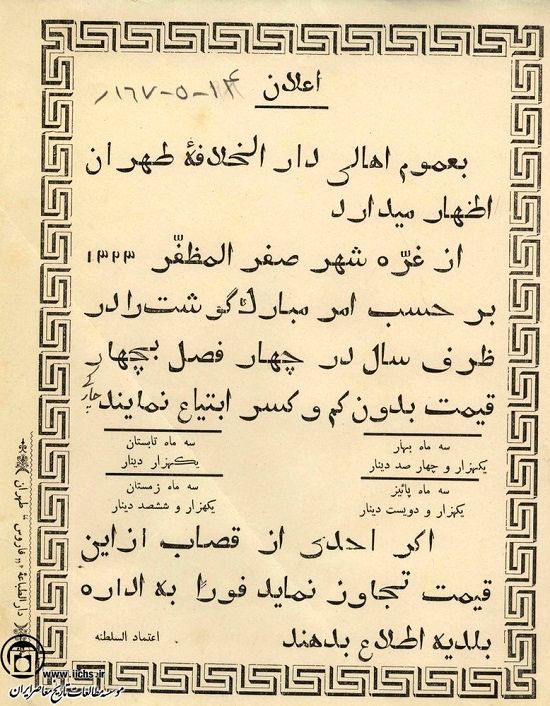 اعلان
۱۶۷-۵-۱۴
بعموم اهالی دار الخلافۀ طهران
اظهار میدارد
از غرّه شهر صفر المظفّر ۱۳۲۳
بر حسب امر مبارك گوشت را در
ظرف سال در چهار فصل بچهار
قیمت بدون کم و کسر ابتیاع نمایند
سه ماه بهار
یکهزار و چهار صد دینار
سه ماه تابستان
یکهزار دینار
سه ماه پائیز
یکهزار و دویست دینار
سه ماه زمستان
یکهزار و ششصد دینار
اکر احدی از قصاب ازاین
قیمت تجاوز نماید فوراً به اداره
بلدیه اطلاع بدهند
اعتماد السلطنه
دار الطباعۀ «فاروس» طهران
www.iichs.ir
موسسه مطالعات تاریخ معاصر ایران